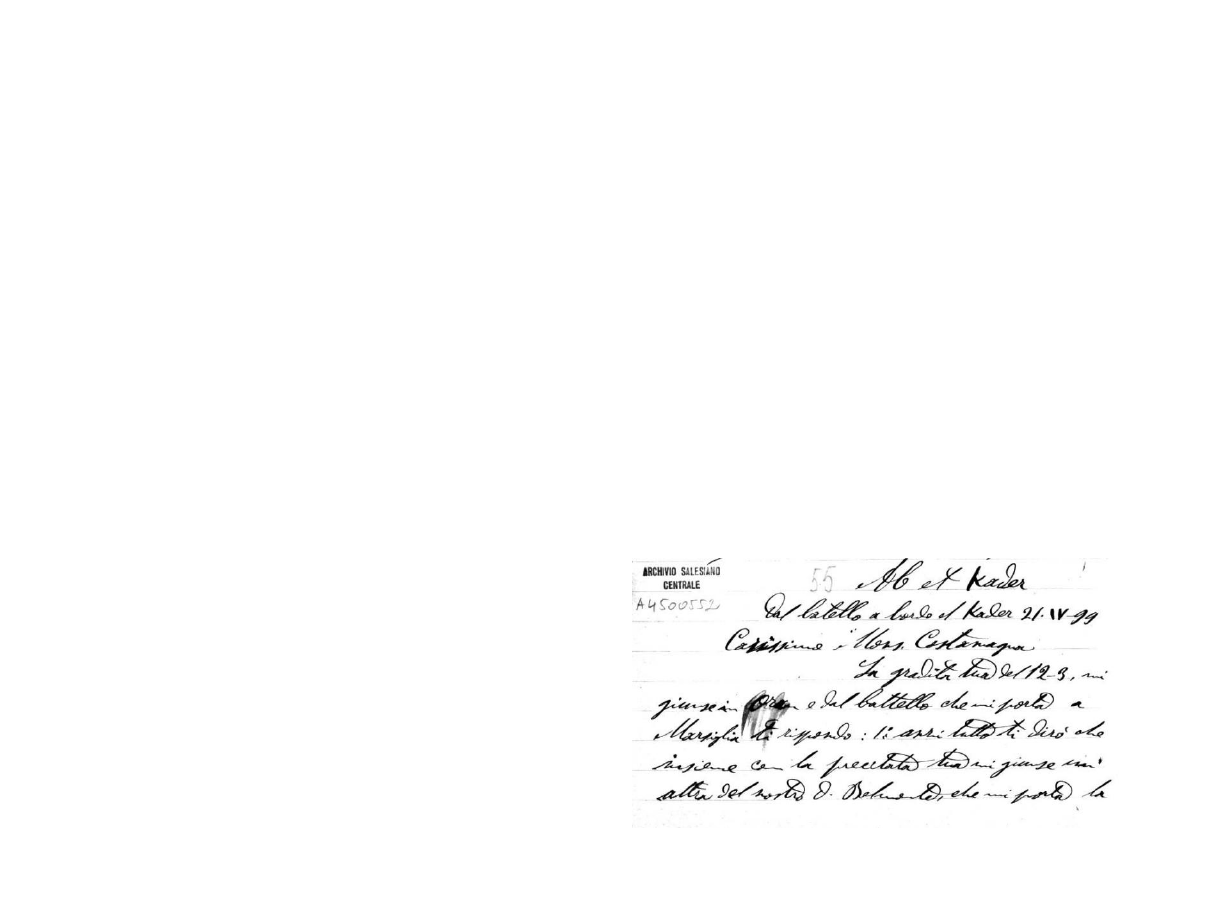 ARCHIVIO SALESIANO
CENTRALE
A4500552
55
Ab el Kader
Dal batello a bordo el Kader 21-IV-99
Carissimo Mons. Costamagna
La gradita tua del 12-3, mi
giunse in Oran e dal battello che mi porta a
Marsiglia ti rispondo: 1: anzi tutto ti dirò che
insieme con la precitata tua mi giunse un'
altra del nostro D. Belmonte, che mi porta la